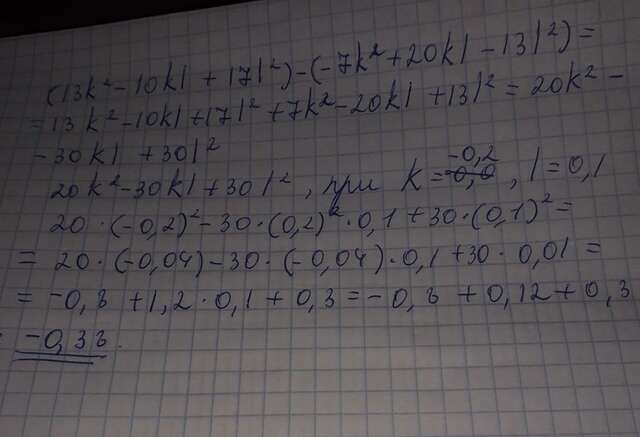 (13k²-10kl+17l²)-(-7k²+20kl-13l²)=
=13k²-10kl+17l²+7k²-20kl+13l²=20k²-
-30kl+30l²
-0,2
20k²-30kl+30l², при k=0,0, l=0,1
20·(-0,2)²-30·(0,2)²·0,1+30·(0,1)²=
=20·(-0,04)-30·(-0,04)·0,1+30·0,01=
=-0,8+1,2·0,1+0,3=-0,8+0,12+0,3
-0,38.